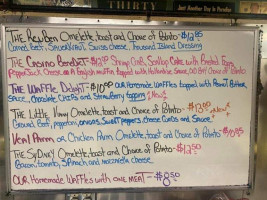 THIRTY
Just Another Day in Paradise
THE Reuben Omelette, toast and Choice of Potato - $12.95
Corned beef, Sauerkraut, Swiss Cheese, Thousand Island Dressing
THE Casino Benedict - Shrimp Crab, Scallop Cake with Poached Eggs
PepperJack Cheese on A English muffin topped with Hollandaise Sauce, Choice of Potato
THE Waffle Delight - $10.95 OUR Homemade Waffles topped with Peanut Butter
Sauce, Chocolate Chips and Strawberry topping
THE Little Vinny Omelette, toast and Choice of Potato -
Ground Beef, pepperoni, onions, Sweet peppers, cheese Curds and Sauce
Veal Parm or Chicken Parm Omelette, toast and Choice of Potato - $10.95
THE Sydney Omelette, toast and Choice of Potato - $12.50
Bacon, tomato, Spinach, and mozzarella cheese
OUR Homemade Waffles with one MEAT - $8.50